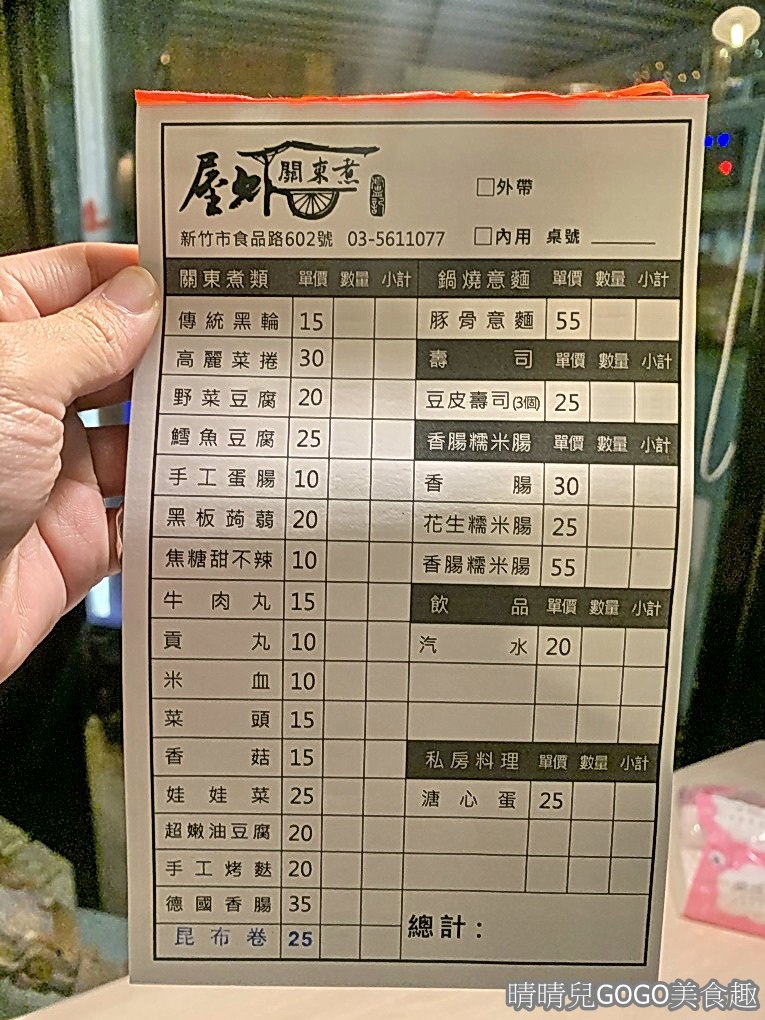 屋外 關東煮
□外帶
新竹市食品路602號 03-5611077
□內用 桌號
關東煮類 單價 數量 小計
傳統黑輪 15
高麗菜捲 30
野菜豆腐 20
鱈魚豆腐 25
手工蛋腸 10
黑板蒟蒻 20
焦糖甜不辣 10
牛肉丸 15
貢丸 10
米血 10
菜頭 15
香菇 15
娃娃菜 25
超嫩油豆腐 20
手工烤麩 20
德國香腸 35
昆布卷 25
鍋燒意麵 單價 數量 小計
豚骨意麵 55
壽司 單價 數量 小計
豆皮壽司(3個) 25
香腸糯米腸 單價 數量 小計
香腸 30
花生糯米腸 25
香腸糯米腸 55
飲品 單價 數量 小計
汽水 20
私房料理 單價 數量 小計
溏心蛋 25
總計：
晴晴兒GOGO美食趣